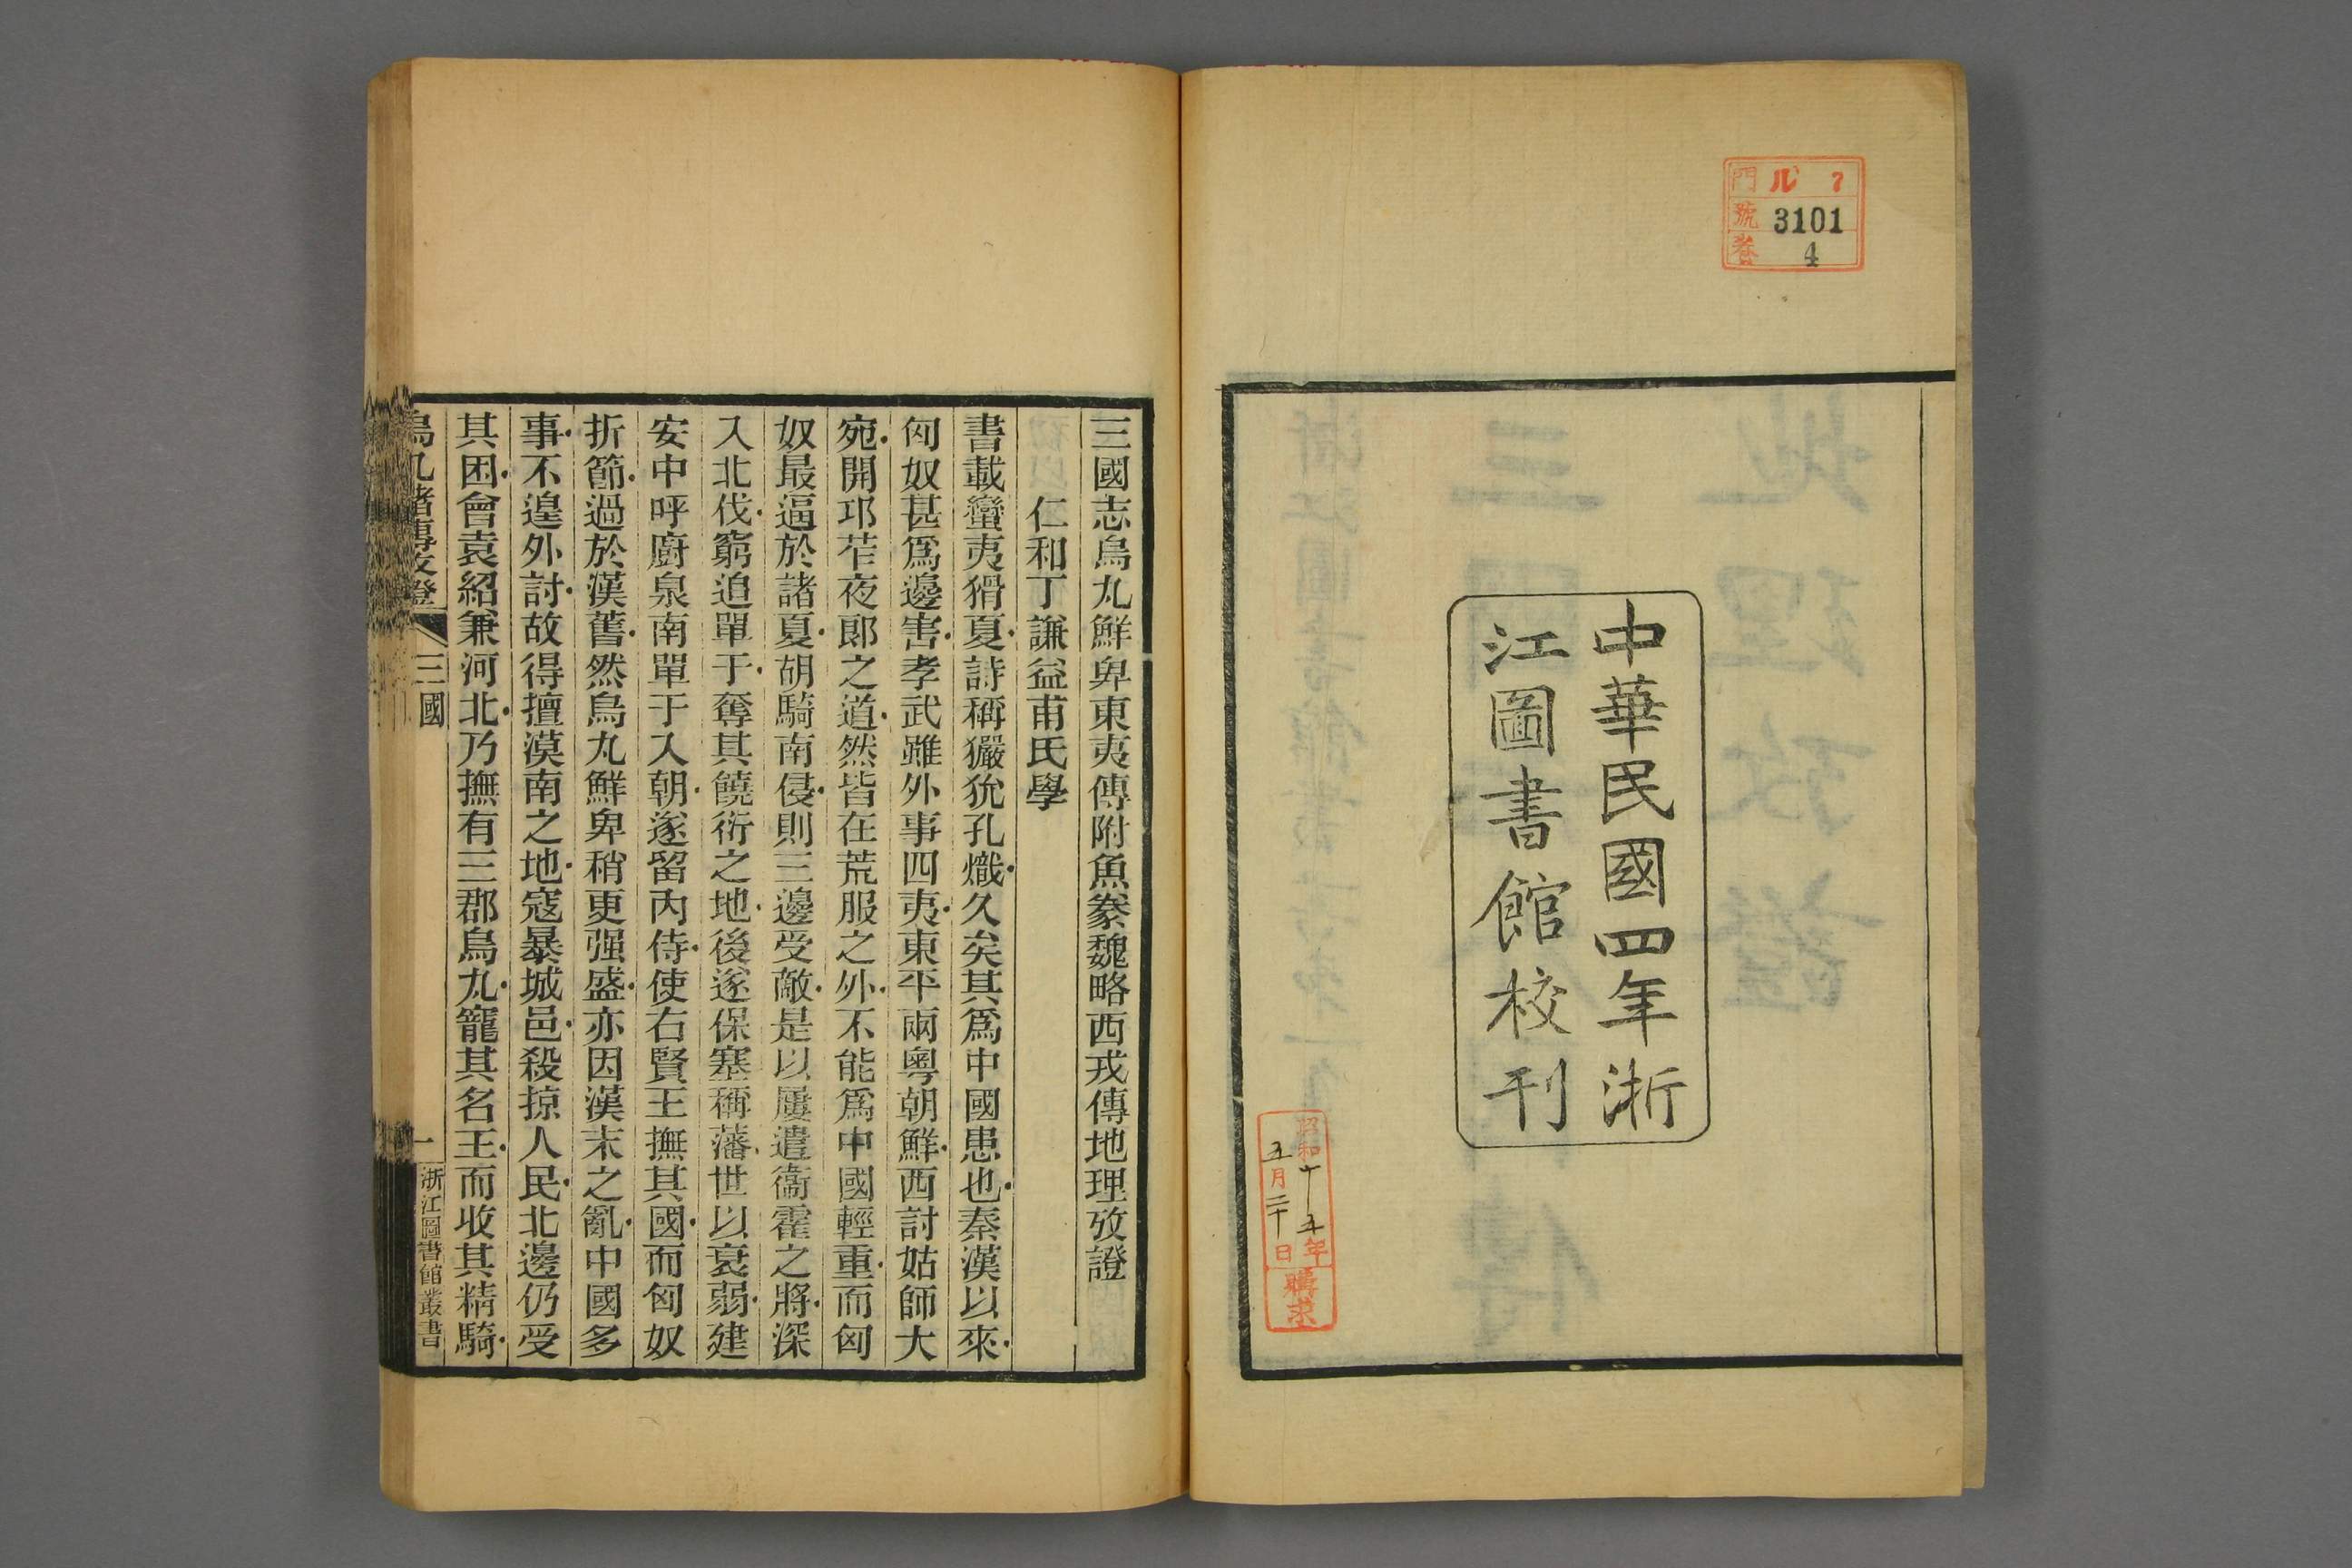 門 ル 7
號 3101
卷 4
中華民國四年浙
江圖書館校刊
昭和十五年
五月二十日
購求
三國志烏丸鮮卑東夷傳附魚豢魏略西戎傳地理攷證
仁和丁謙益甫氏學
書載蠻夷猾夏詩稱玁狁孔熾久矣其爲中國患也秦漢以來
匈奴甚爲邊害孝武雖外事四夷東平兩粵朝鮮西討姑師大
宛開邛苲夜郎之道然皆在荒服之外不能爲中國輕重而匈
奴最逼於諸夏胡騎南侵則三邊受敵是以屢遣衞霍之將深
入北伐窮追單于奪其饒衍之地後遂保塞稱藩世以衰弱建
安中呼廚泉南單于入朝遂留內侍使右賢王撫其國而匈奴
折節過於漢舊然烏丸鮮卑稍更强盛亦因漢末之亂中國多
事不遑外討故得擅漠南之地寇暴城邑殺掠人民北邊仍受
其困會袁紹兼河北乃撫有三郡烏丸寵其名王而收其精騎
烏丸諸傳攷證 三國 一 浙江圖書館叢書